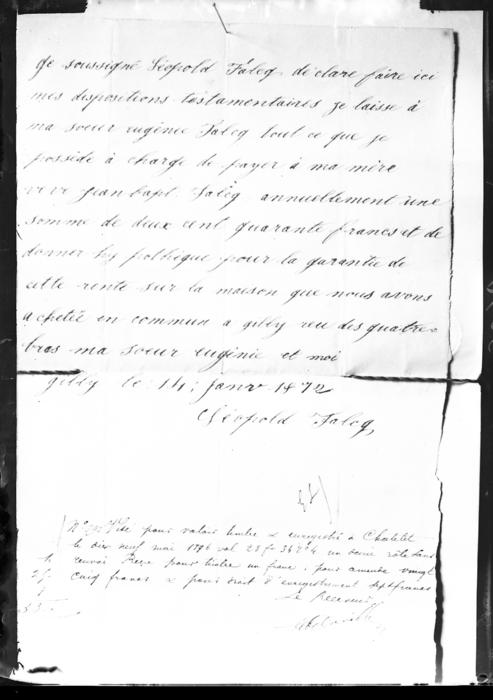 Je soussigné Léopold Falcq déclare faire ici
mes dispositions testamentaires je laisse à
ma soeur eugénie Falcq tout ce que je
possède à charge de payer à ma mère
veve jean bapt. Falcq annuellement une
somme de deux cent quarante francs et de
donner hypothèque pour la garantie de
cette rente sur la maison que nous avons
achetée en commun a gilly rue des quatre
bras ma soeur eugénie et moi
gilly le 14 janvr 1872
Léopold Falcq
pour valoir timbre & enregistré à Chatelet
le dix neuf mai vol 28 un seul rôle sans
renvoi Reçu pour timbre un franc, pour amende vingt
cinq francs & pour droit d'enregistrement sept francs
Le Receveur